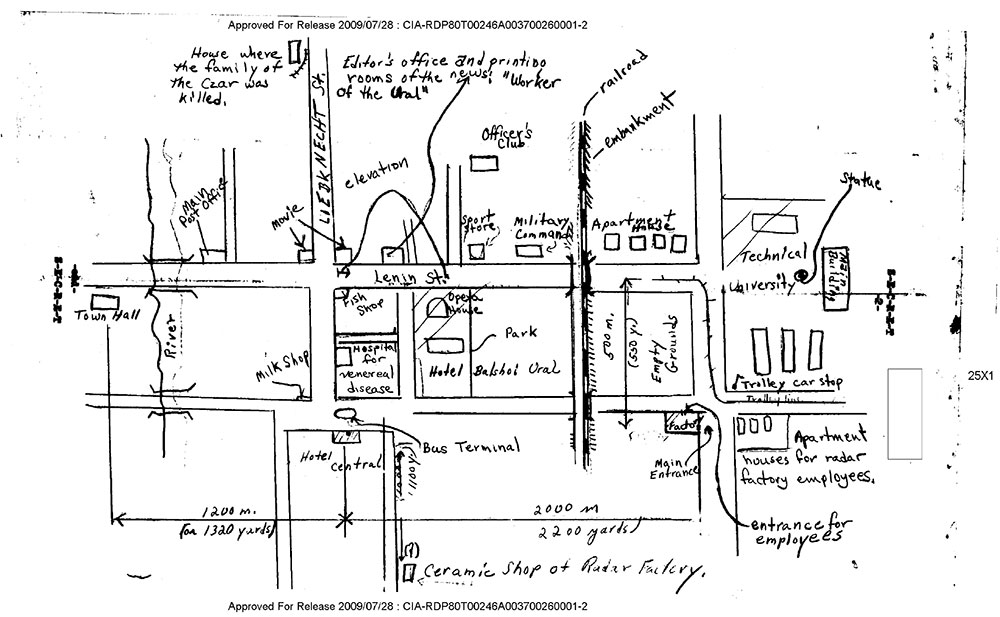 Approved For Release 2009/07/28 : CIA-RDP80T00246A003700260001-2
House where
the family of
the Czar was
killed.
LIEDKNECHT St.
Editor's office and printing
rooms of the news: "Worker
of the Ural"
railroad
embankment
Officer's
Club
elevation
Main
Post Office
movie
Sport
Store
Military
Command
Apartment
House
Statue
Technical
University
Main
Building
S-E-C-R-E-T
S-E-C-R-E-T
-2-
Lenin St.
Town Hall
River
Fish
Shop
Opera
House
Park
Hospital
for
venereal
disease
Hotel Balshoi Ural
Milk Shop
500 m.
(550 y.)
Empty
Grounds
Trolley car stop
Trolley line
25X1
Factory
Main
Entrance
Apartment
houses for radar
factory employees.
Bus Terminal
Hotel
Central
1200 m.
(or 1320 yards)
2000 m
2200 yards)
entrance for
employees
(?)
Ceramic Shop of Radar Factory.
Approved For Release 2009/07/28 : CIA-RDP80T00246A003700260001-2